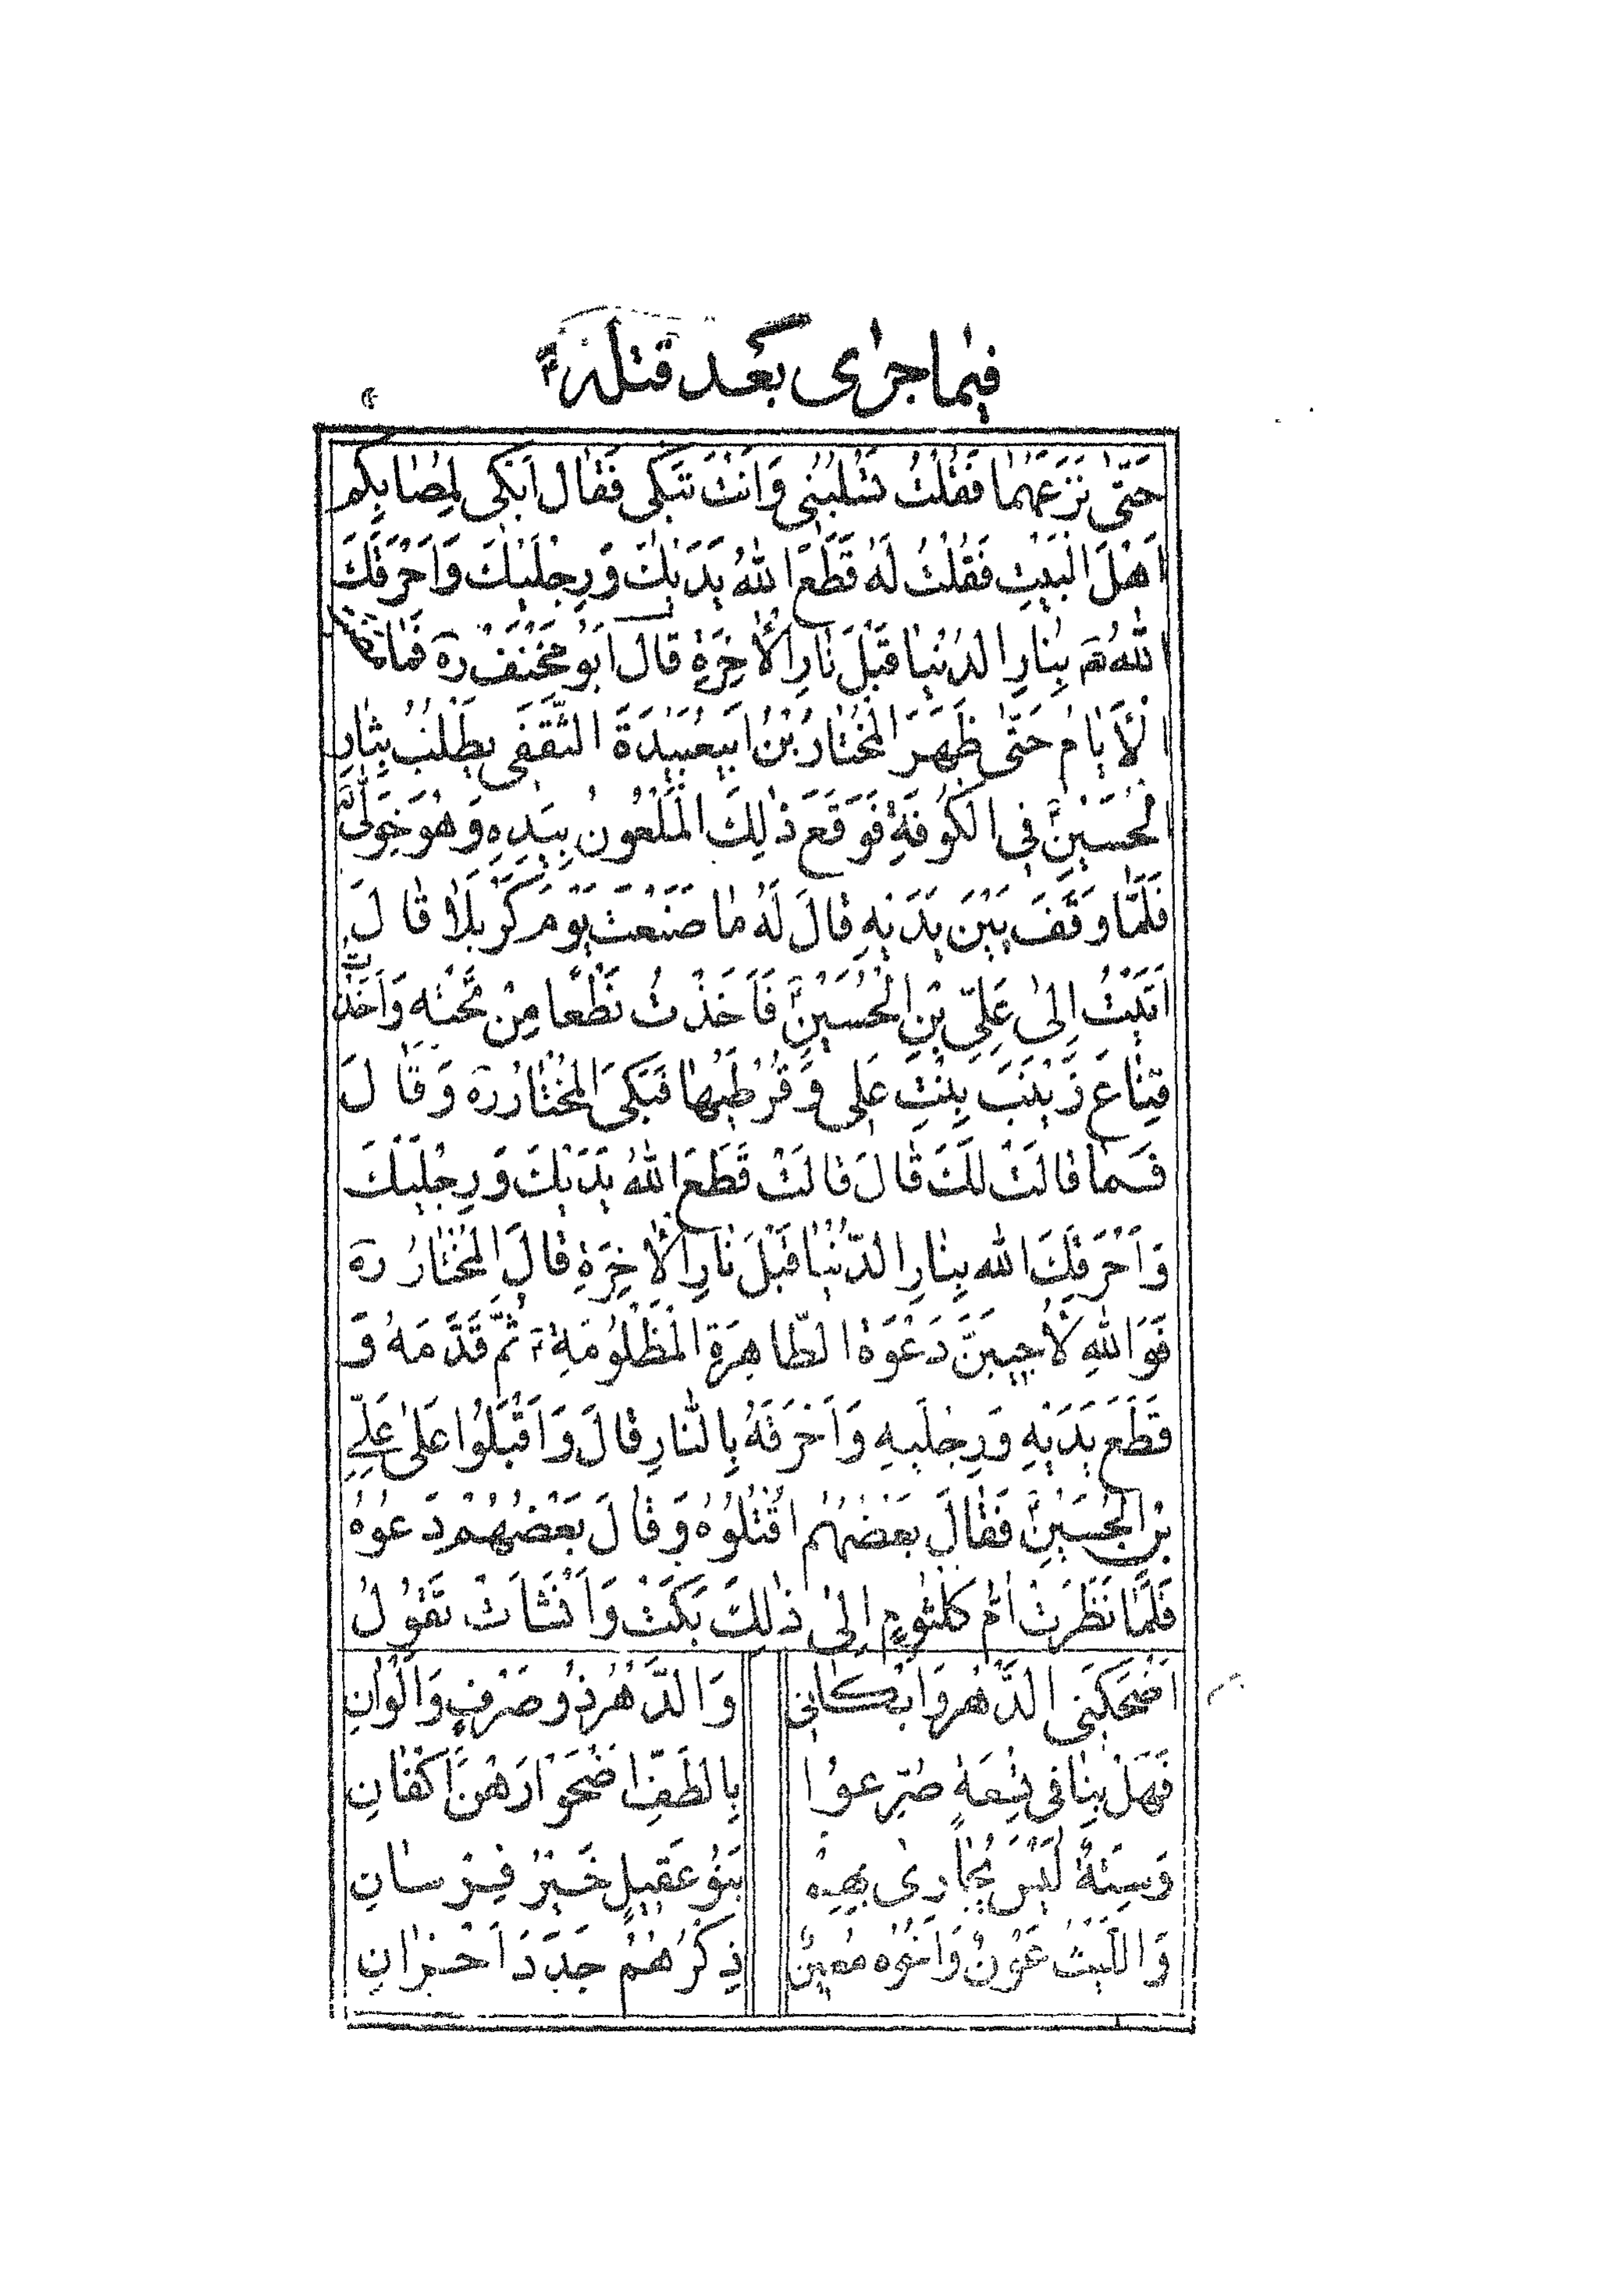 فِيمَا جَرٰى بَعْدَ قَتْلِهِ
حَتّٰى نَزَعَهُمَا فَقُلْتُ تَسْلُبُنِي وَاَنْتَ تَبْكِي فَقَالَ اَبْكِي لِمُصَابِكُمْ
اَهْلَ الْبَيْتِ فَقُلْتُ لَهُ قَطَعَ اللهُ يَدَيْكَ وَرِجْلَيْكَ وَاَحْرَقَكَ
اللهُ بِنَارِ الدُّنْيَا قَبْلَ نَارِ الْاٰخِرَةِ قَالَ اَبُو مِخْنَفٍ ره فَمَا
الْاَيَّامُ حَتّٰى ظَهَرَ الْمُخْتَارُ بْنُ اَبِيعُبَيْدَةَ الثَّقَفِي يَطْلُبُ بِثَارِ
الْحُسَيْنِ فِي الْكُوفَةِ فَوَقَعَ ذٰلِكَ الْمَلْعُونُ بِيَدِهِ وَهُوَ خَوَلِّى
فَلَمَّا وَقَفَ بَيْنَ يَدَيْهِ قَالَ لَهُ مَا صَنَعْتَ يَوْمَ كَرْبَلَا قَالَ
اَتَيْتُ اِلىٰ عَلِيِّ بْنِ الْحُسَيْنِ فَاَخَذْتُ نَطْعًا مِنْ تَحْتِهِ وَاَخَذْتُ
قِنَاعَ زَيْنَبَ بِنْتِ عَلِي وَقُرْطَيْهَا فَبَكَى الْمُخْتَارُ ره وَقَالَ
فَمَا قَالَتْ لَكَ قَالَ قَالَتْ قَطَعَ اللهُ يَدَيْكَ وَرِجْلَيْكَ
وَاَحْرَقَكَ اللهُ بِنَارِ الدُّنْيَا قَبْلَ نَارِ الْاٰخِرَةِ قَالَ الْمُخْتَارُ ره
فَوَاللهِ لَاُجِيبَنَّ دَعْوَةَ الطَّاهِرَةِ الْمَظْلُومَةِ ثُمَّ قَدَّمَهُ وَ
قَطَعَ يَدَيْهِ وَرِجْلَيْهِ وَاَحْرَقَهُ بِالنَّارِ قَالَ وَاَقْبَلُوا عَلىٰ عَلِيِّ
بْنِ الْحُسَيْنِ فَقَالَ بَعْضُهُمْ اقْتُلُوهُ وَقَالَ بَعْضُهُمْ دَعُوهُ
فَلَمَّا نَظَرَتْ اُمُّ كُلْثُومٍ اِلىٰ ذٰلِكَ بَكَتْ وَاَنْشَاَتْ تَقُولُ
اَضْحَكَنِي الدَّهْرُ وَاَبْكَانِي وَالدَّهْرُ ذُو صَرْفٍ وَاَلْوَانِ
فَهَلْ بِنَا فِي تِسْعَةٍ صُرِّعُوا بِالطَّفِّ اَضْحَوْا رَهْنَ اَكْفَانِ
وَسِتَّةٌ لَيْسَ يُجَارٰى بِهِمْ بَنُو عَقِيلٍ خَيْرُ فِرْسَانِ
وَاللَّيْثُ عَوْنٌ وَاَخُوهُ مُعِينٌ ذِكْرُهُمْ جَدَّدَ اَحْزَانِ